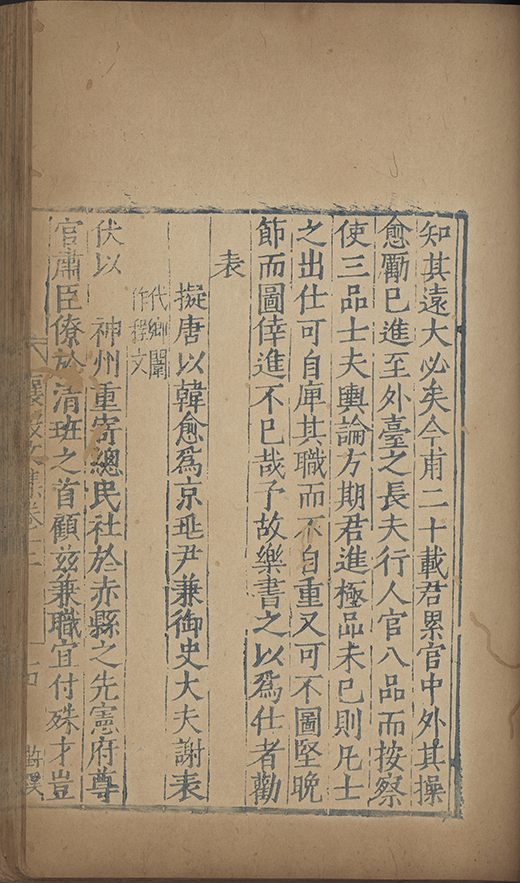 知其遠大必矣今甫二十載君累官中外其操
愈勵已進至外臺之長夫行人官八品而按察
使三品士夫輿論方期君進極品未已則凡士
之出仕可自庳其職而不自重又可不圖堅晚
節而圖倖進不已哉予故樂書之以爲仕者勸
表
擬唐以韓愈爲京兆尹兼御史大夫謝表
代鄉闈
作程文
伏以 神州重寄總民社於赤縣之先憲府尊
官肅臣僚於清班之首顧兹兼職宜付殊才豈
襄毅文集卷十